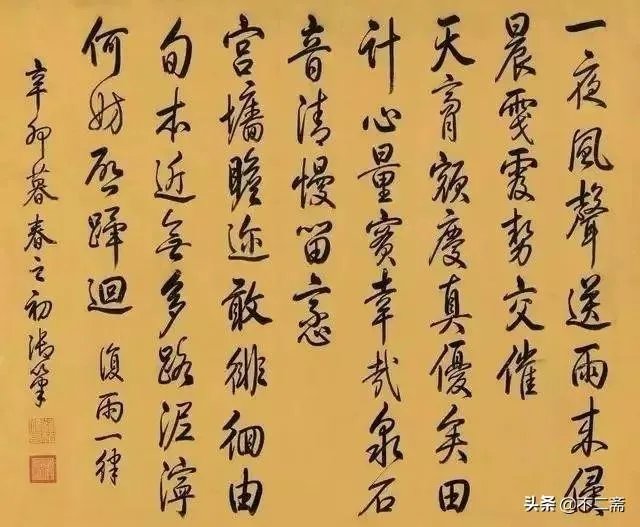 一夜風聲送雨来侵
晨霡霂勢交催
天膏額慶真優矣田
計心量實幸哉泉石
音清慢留意
宮墻瞻迩敢徘徊由
旬本近無多路泥濘
何妨啟蹕迴
復雨一律
辛卯暮春之初御筆
头条 @不二斋